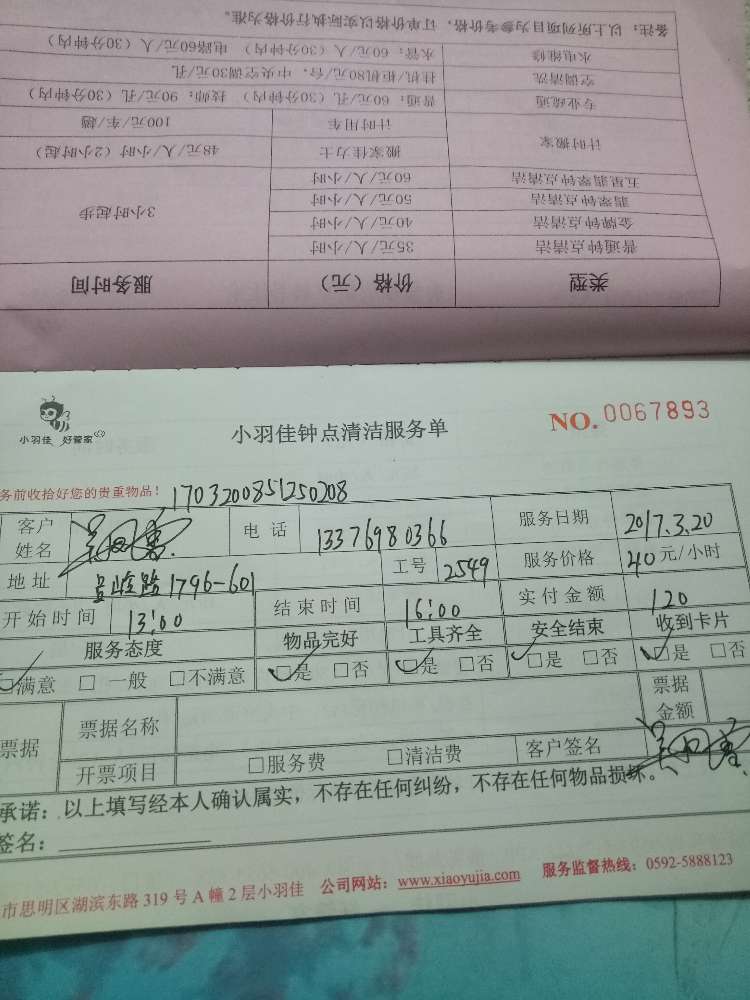 备注：以上所列项目为参考价格，订单价格以实际执行价格为准。
水电维修 水管：60元/人（30分钟内） 电路60元/人（30分钟内）
空调清洗 挂机/柜机80元/台，中央空调30元/孔
专业疏通 普通：60元/孔（30分钟内） 技师：90元/孔（30分钟内）
计时用车 100元/车/趟
计时搬家 搬家佳力士 48元/人/小时（2小时起）
五星翡翠钟点清洁 60元/人/小时
翡翠钟点清洁 50元/人/小时
3小时起步
金牌钟点清洁 40元/人/小时
普通钟点清洁 35元/人/小时
类型 价格（元） 服务时间
小羽佳 好管家
小羽佳钟点清洁服务单
NO. 0067893
务前收拾好您的贵重物品！ 1703200851250208
客户姓名 电话 13376980366 服务日期 2017.3.20
地址 吕岭路1796-601 工号 2549 服务价格 40元/小时
开始时间 13:00 结束时间 16:00 实付金额 120
服务态度 物品完好 工具齐全 安全结束 收到卡片
☑满意 □一般 □不满意 ☑是 □否 ☑是 □否 ☑是 □否 ☑是 □否
票据 票据名称 票据金额
开票项目 □服务费 □清洁费 客户签名
承诺：以上填写经本人确认属实，不存在任何纠纷，不存在任何物品损坏。
签名：
市思明区湖滨东路319号A幢2层小羽佳 公司网站：www.xiaoyujia.com 服务监督热线：0592-5888123